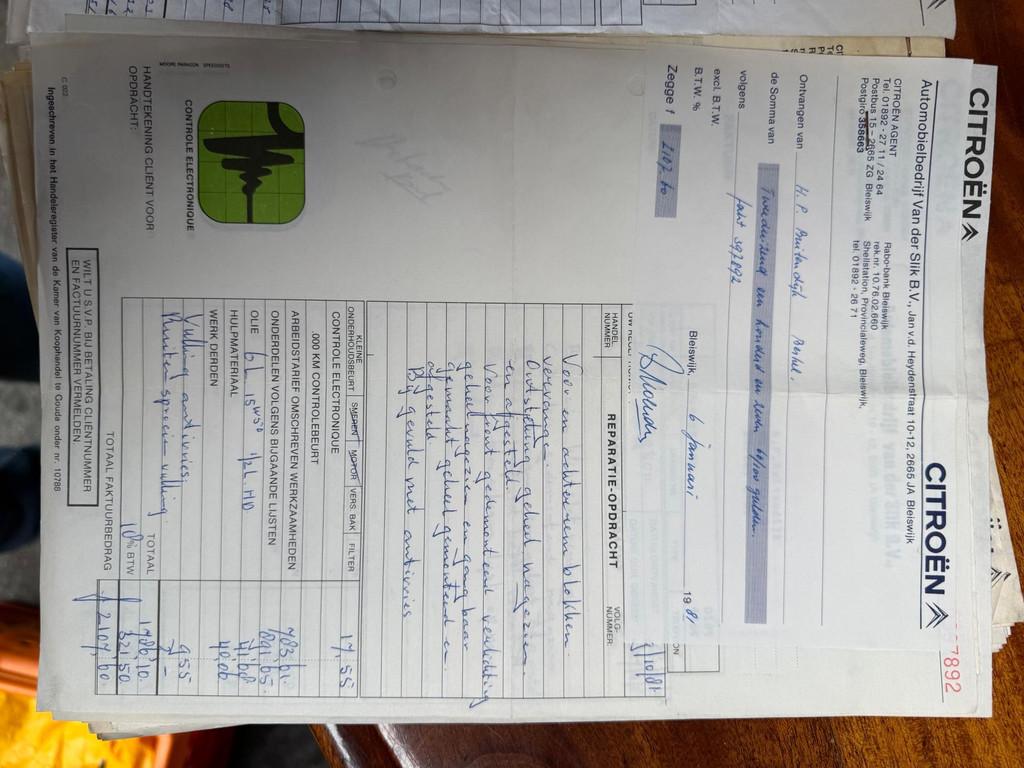 CITROËN
CITROËN
7892
Automobielbedrijf Van der Slik B.V., Jan v.d. Heydenstraat 10-12, 2665 JA Bleiswijk
CITROËN AGENT
Tel. 01892 - 27 11 / 24 64
Postbus 15 - 2665 ZG Bleiswijk
Postgiro 358663
Rabo-bank Bleiswijk
rek.nr. 10.76.02.660
Shellstation, Provincialeweg, Bleiswijk,
tel. 01892 - 26 71
Ontvangen van H.P. Buitendijk
de Somma van Tweeduizend een honderd en zeven 60/100 gulden.
volgens fakt 397892
excl. B.T.W.
B.T.W. %
Bleiswijk 6 januari 1981
Zegge f 2107.60
HANDELS
NUMMER
REPARATIE-OPDRACHT
VOLG-
NUMMER:
Voor en achterrem blokken
vervangen.
Ontsteking geheel nagezien
en afgesteld.
Voorfront gedemonteerd verlichting
geheel nagezien en gangbaar
gemaakt geheel gemonteerd en
afgesteld
Bij gevuld met antivries
KLEINE
ONDERHOUDSBEURT SMEREN MOTOR VERS. BAK FILTER
CONTROLE ELECTRONIQUE 17,55
.000 KM CONTROLEBEURT
ARBEIDSTARIEF OMSCHREVEN WERKZAAMHEDEN
ONDERDELEN VOLGENS BIJGAANDE LIJSTEN
OLIE 6 L 15W50 1/2 L HD
HULPMATERIAAL
WERK DERDEN
Vulling antivries 9.55
Ruitensproeier vulling
TOTAAL 1786,10
18% BTW 321,50
TOTAAL FAKTUURBEDRAG f 2107,60
MOORE PARAGON SPEEDISETS
CONTROLE ELECTRONIQUE
HANDTEKENING CLIËNT VOOR
OPDRACHT:
WILT U S.V.P. BIJ BETALING CLIENTNUMMER
EN FACTUURNUMMER VERMELDEN
C 002
Ingeschreven in het Handelsregister van de Kamer van Koophandel te Gouda onder nr. 10788